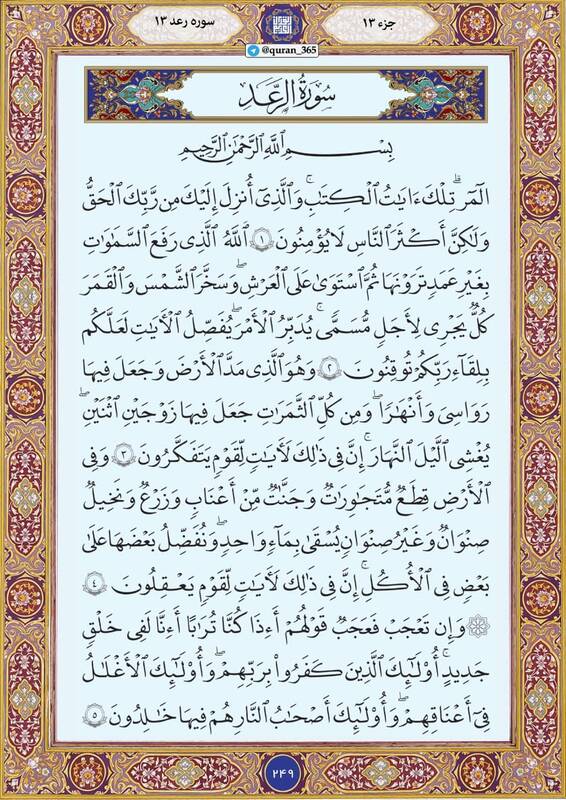 سوره رعد ۱۳
جزء ۱۳
@quran_365
سُورَةُ الرَّعْدِ
بِسْمِ ٱللَّهِ ٱلرَّحْمَٰنِ ٱلرَّحِيمِ
الٓمٓرۚ تِلْكَ ءَايَٰتُ ٱلْكِتَٰبِۗ وَٱلَّذِىٓ أُنزِلَ إِلَيْكَ مِن رَّبِّكَ ٱلْحَقُّ
وَلَٰكِنَّ أَكْثَرَ ٱلنَّاسِ لَا يُؤْمِنُونَ ۝١ ٱللَّهُ ٱلَّذِى رَفَعَ ٱلسَّمَٰوَٰتِ
بِغَيْرِ عَمَدٍ تَرَوْنَهَا ثُمَّ ٱسْتَوَىٰ عَلَى ٱلْعَرْشِۖ وَسَخَّرَ ٱلشَّمْسَ وَٱلْقَمَرَ
كُلٌّ يَجْرِى لِأَجَلٍ مُّسَمًّىۚ يُدَبِّرُ ٱلْأَمْرَ يُفَصِّلُ ٱلْءَايَٰتِ لَعَلَّكُم
بِلِقَآءِ رَبِّكُمْ تُوقِنُونَ ۝٢ وَهُوَ ٱلَّذِى مَدَّ ٱلْأَرْضَ وَجَعَلَ فِيهَا
رَوَٰسِىَ وَأَنْهَٰرًاۖ وَمِن كُلِّ ٱلثَّمَرَٰتِ جَعَلَ فِيهَا زَوْجَيْنِ ٱثْنَيْنِۖ
يُغْشِى ٱلَّيْلَ ٱلنَّهَارَۚ إِنَّ فِى ذَٰلِكَ لَءَايَٰتٍ لِّقَوْمٍ يَتَفَكَّرُونَ ۝٣ وَفِى
ٱلْأَرْضِ قِطَعٌ مُّتَجَٰوِرَٰتٌ وَجَنَّٰتٌ مِّنْ أَعْنَٰبٍ وَزَرْعٌ وَنَخِيلٌ
صِنْوَانٌ وَغَيْرُ صِنْوَانٍ يُسْقَىٰ بِمَآءٍ وَٰحِدٍ وَنُفَضِّلُ بَعْضَهَا عَلَىٰ
بَعْضٍ فِى ٱلْأُكُلِۚ إِنَّ فِى ذَٰلِكَ لَءَايَٰتٍ لِّقَوْمٍ يَعْقِلُونَ ۝٤
۞ وَإِن تَعْجَبْ فَعَجَبٌ قَوْلُهُمْ أَءِذَا كُنَّا تُرَٰبًا أَءِنَّا لَفِى خَلْقٍ
جَدِيدٍۗ أُو۟لَٰٓئِكَ ٱلَّذِينَ كَفَرُوا۟ بِرَبِّهِمْۖ وَأُو۟لَٰٓئِكَ ٱلْأَغْلَٰلُ
فِىٓ أَعْنَاقِهِمْۖ وَأُو۟لَٰٓئِكَ أَصْحَٰبُ ٱلنَّارِ هُمْ فِيهَا خَٰلِدُونَ ۝٥
۲۴۹